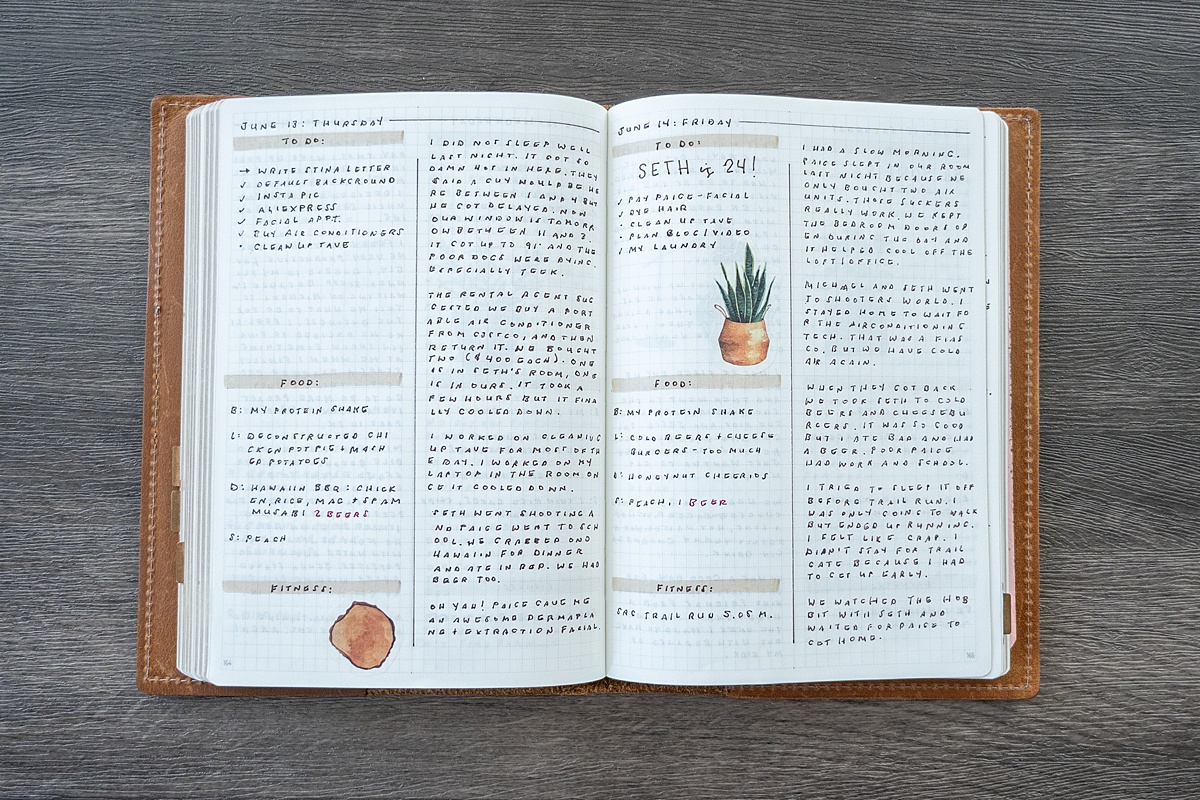 JUNE 13: THURSDAY
TO DO:
→ WRITE STINA LETTER
✓ DEFAULT BACKGROUND
✓ INSTA PIC
✓ ALIEXPRESS
✓ FACIAL APPT.
✓ BUY AIR CONDITIONERS
• CLEAN UP TAVE
FOOD:
B: MY PROTEIN SHAKE
L: DECONSTRUCTED CHI
CKEN POT PIE + MASH
ED POTATOES
D: HAWAIIN BBQ: CHICK
EN, RICE, MAC + SPAM
MUSABI 2 BEERS
S: PEACH
FITNESS:
164
I DID NOT SLEEP WELL
LAST NIGHT. IT GOT SO
DAMN HOT IN HERE. THEY
SAID A GUY WOULD BE HE
RE BETWEEN 1 AND 4 BUT
HE GOT DELAYED. NOW
OUR WINDOW IS TOMORR
OW BETWEEN 11 AND 2.
IT GOT UP TO 91° AND THE
POOR DOGS WERE DYING.
ESPECIALLY TEEK.
THE RENTAL AGENT SUG
GESTED WE BUY A PORT
ABLE AIR CONDITIONER
FROM COSTCO, AND THEN
RETURN IT. WE BOUGHT
TWO ($400 EACH). ONE
IS IN SETH'S ROOM, ONE
IS IN OURS. IT TOOK A
FEW HOURS BUT IT FINA
LLY COOLED DOWN.
I WORKED ON CLEANING
UP TAVE FOR MOST OF TH
E DAY. I WORKED ON MY
LAPTOP IN THE ROOM ON
CE IT COOLED DOWN.
SETH WENT SHOOTING A
ND PAIGE WENT TO SCH
OOL. WE GRABBED OND
HAWAIIN FOR DINNER
AND ATE IN BED. WE HAD
BEER TOO.
OH YAH! PAIGE GAVE ME
AN AWESOME DERMAPLA
NE + EXTRACTION FACIAL.
JUNE 14: FRIDAY
TO DO:
SETH is 24!
✓ PAY PAIGE-FACIAL
✓ DYE HAIR
• CLEAN UP TAVE
• PLAN BLOG/VIDEO
/ MY LAUNDRY
FOOD:
B: MY PROTEIN SHAKE
L: COLD BEERS + CHEESE
BURGERS - TOO MUCH
D: HONEYNUT CHEERIOS
S: PEACH, 1 BEER
FITNESS:
SRC TRAIL RUN 5.05 M.
I HAD A SLOW MORNING.
PAIGE SLEPT IN OUR ROOM
LAST NIGHT BECAUSE WE
ONLY BOUGHT TWO AIR
UNITS. THOSE SUCKERS
REALLY WORK. WE KEPT
THE BEDROOM DOORS OP
EN DURING THE DAY AND
IT HELPED COOL OFF THE
LOFT/OFFICE.
MICHAEL AND SETH WENT
TO SHOOTERS WORLD. I
STAYED HOME TO WAIT FO
R THE AIRCONDITIONING
TECH. THAT WAS A FIAS
CO, BUT WE HAVE COLD
AIR AGAIN.
WHEN THEY GOT BACK
WE TOOK SETH TO COLD
BEERS AND CHEESEBU
RGERS. IT WAS SO GOOD
BUT I ATE BAD AND HAD
A BEER. POOR PAIGE
HAD WORK AND SCHOOL.
I TRIED TO SLEEP IT OFF
BEFORE TRAIL RUN. I
WAS ONLY GOING TO WALK
BUT ENDED UP RUNNING.
I FELT LIKE CRAP. I
DIDN'T STAY FOR TRAIL
GATE BECAUSE I HAD
TO GET UP EARLY.
WE WATCHED THE HOB
BIT WITH SETH AND
WAITED FOR PAIGE TO
GOT HOME.
165